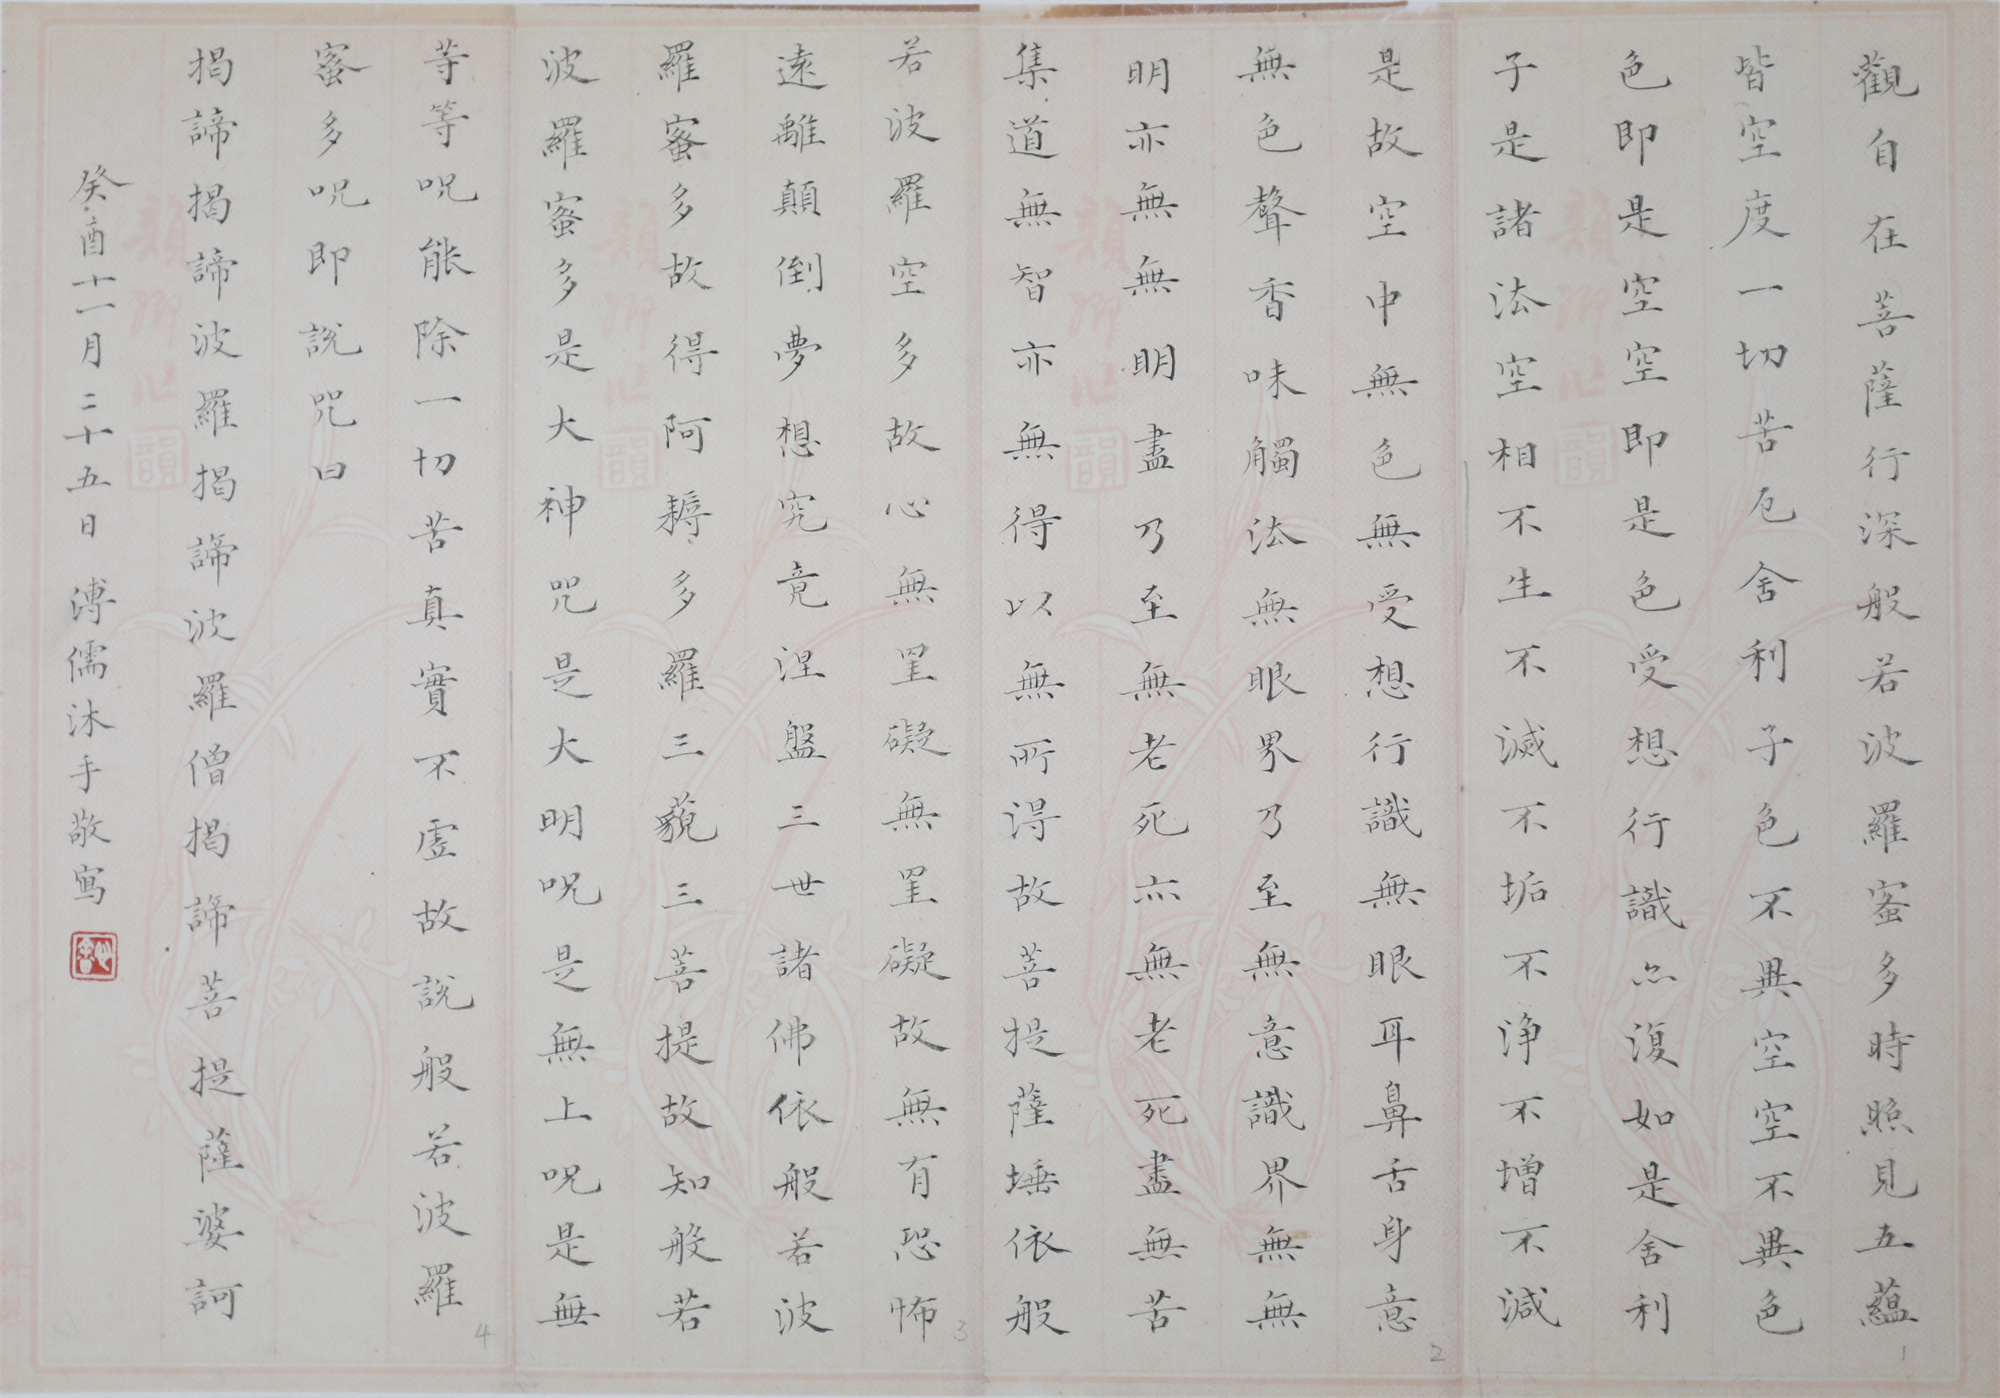 觀自在菩薩行深般若波羅蜜多時照見五蘊
皆空度一切苦厄舍利子色不異空空不異色
色即是空空即是色受想行識亦復如是舍利
子是諸法空相不生不滅不垢不淨不增不減
1
是故空中無色無受想行識無眼耳鼻舌身意
無色聲香味觸法無眼界乃至無意識界無無
明亦無無明盡乃至無老死亦無老死盡無苦
集道無智亦無得以無所得故菩提薩埵依般
2
若波羅空多故心無罣礙無罣礙故無有恐怖
遠離顛倒夢想究竟涅盤三世諸佛依般若波
羅蜜多故得阿耨多羅三藐三菩提故知般若
波羅蜜多是大神咒是大明呪是無上呪是無
3
等等呪能除一切苦真實不虛故說般若波羅
蜜多呪即說咒曰
揭諦揭諦波羅揭諦波羅僧揭諦菩提薩婆訶
癸酉十一月二十五日 溥儒沐手敬寫
心畬
4